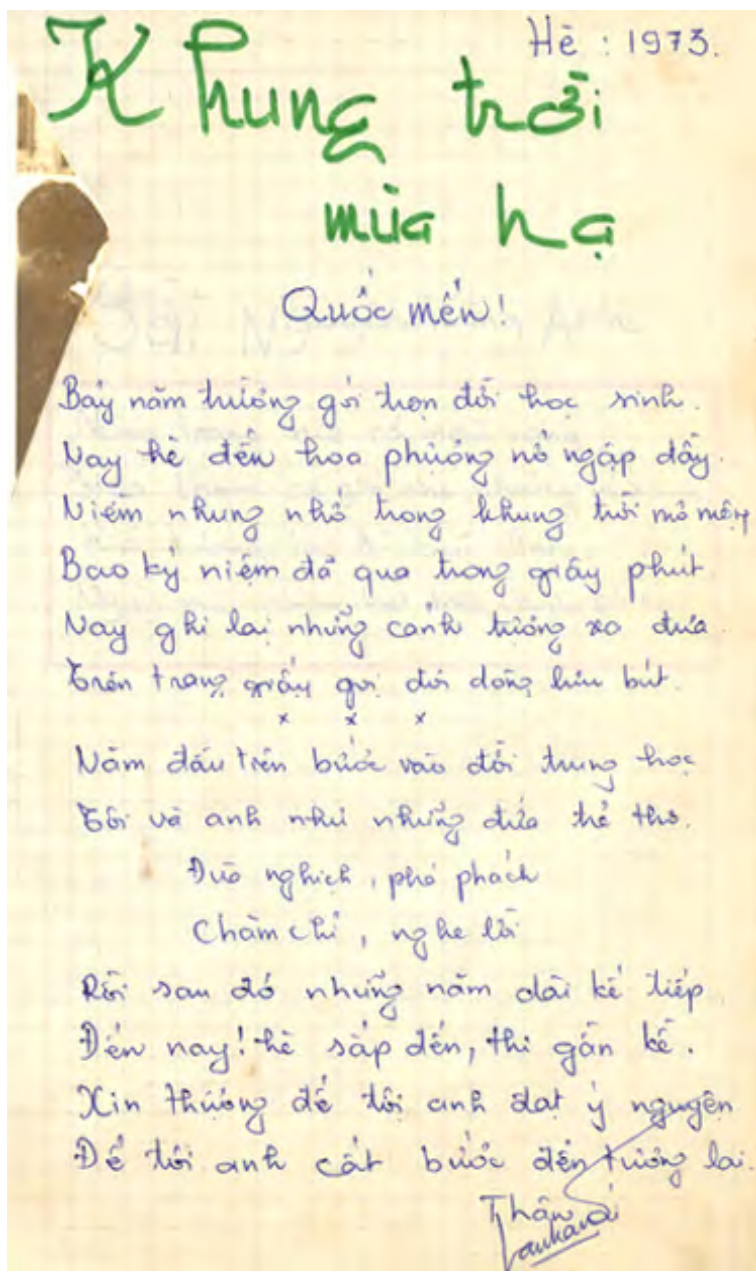 Hè : 1973.
Khung trời
mùa hạ
Quốc mến!
Bảy năm trường gói tron đời học sinh.
Nay hè đến hoa phượng nở ngập đầy.
Niềm nhung nhớ trong khung trời mơ mộng
Bao kỷ niệm đã qua trong giây phút
Nay ghi lại những cảnh tượng xa đưa
Trên trang giấy gọi đôi dòng lưu bút.
x x x
Năm đầu tiên bước vào đời trung học
Tôi và anh như những đứa trẻ thơ.
Đùa nghịch, phá phách
Chăm chỉ, nghe lời
Rồi sau đó những năm dài kế tiếp
Đến nay! hè sắp đến, thi gần kề.
Xin thượng đế tôi anh đạt ý nguyện
Để tôi anh cất bước đến tương lai.
Thân ái